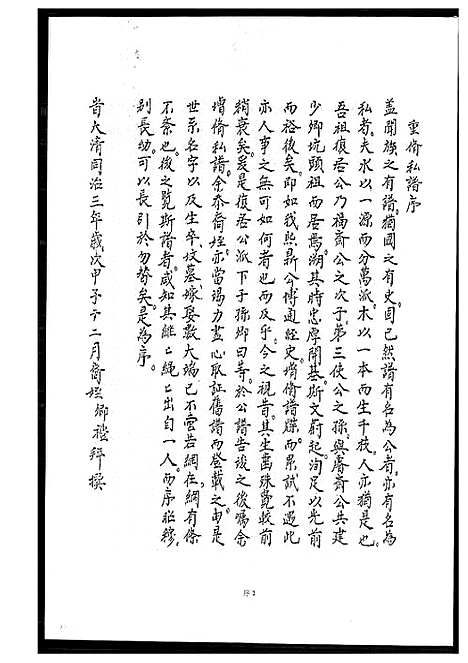 重脩私譜序
蓋聞族之有譜。猶國之有史。固已然譜有名為公者。亦有名為
私者。夫水以一源而分萬派。木以一本而生千枝。人亦猶是也。
吾祖復菴公乃福齋公之次子第三使公之孫與睿齋公共建
少卿坑頭祖而居焉湖其時忠厚開基。斯文蔚起。洵足以光前
而裕後矣。即如我熙鼎公博通經史。增脩譜牒。而累試不遇此
亦人事之無可如何者也。而及乎今之視昔。其生齒殊覺較前
稍衰矣。爰是復菴公派下子孫卿日等。於公譜告竣之後。囑余
增脩私譜。余忝裔姪。亦當竭力盡心。取証舊譜而登載之。由是
世系名字以及生卒墳墓嫁娶數大端。已不啻若網在綱有條
不紊也。後之覽斯譜者。咸知其繩繩出自一人。而序昭穆。
別長幼。可以長引於勿替矣。是為序。
旹大清同治三年歲次甲子十二月裔姪卿禮拜撰
序2